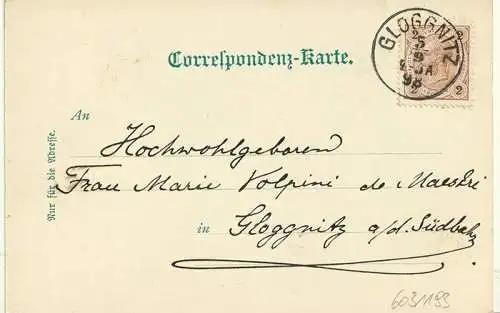 GLOGGNITZ
5
9
98
2 2
Correspondenz-Karte.
An
Hochwohlgeboren
Frau Marie Volpini de Maestri
in Gloggnitz a/d. Südbahn
Nur für die Adresse.
603/193